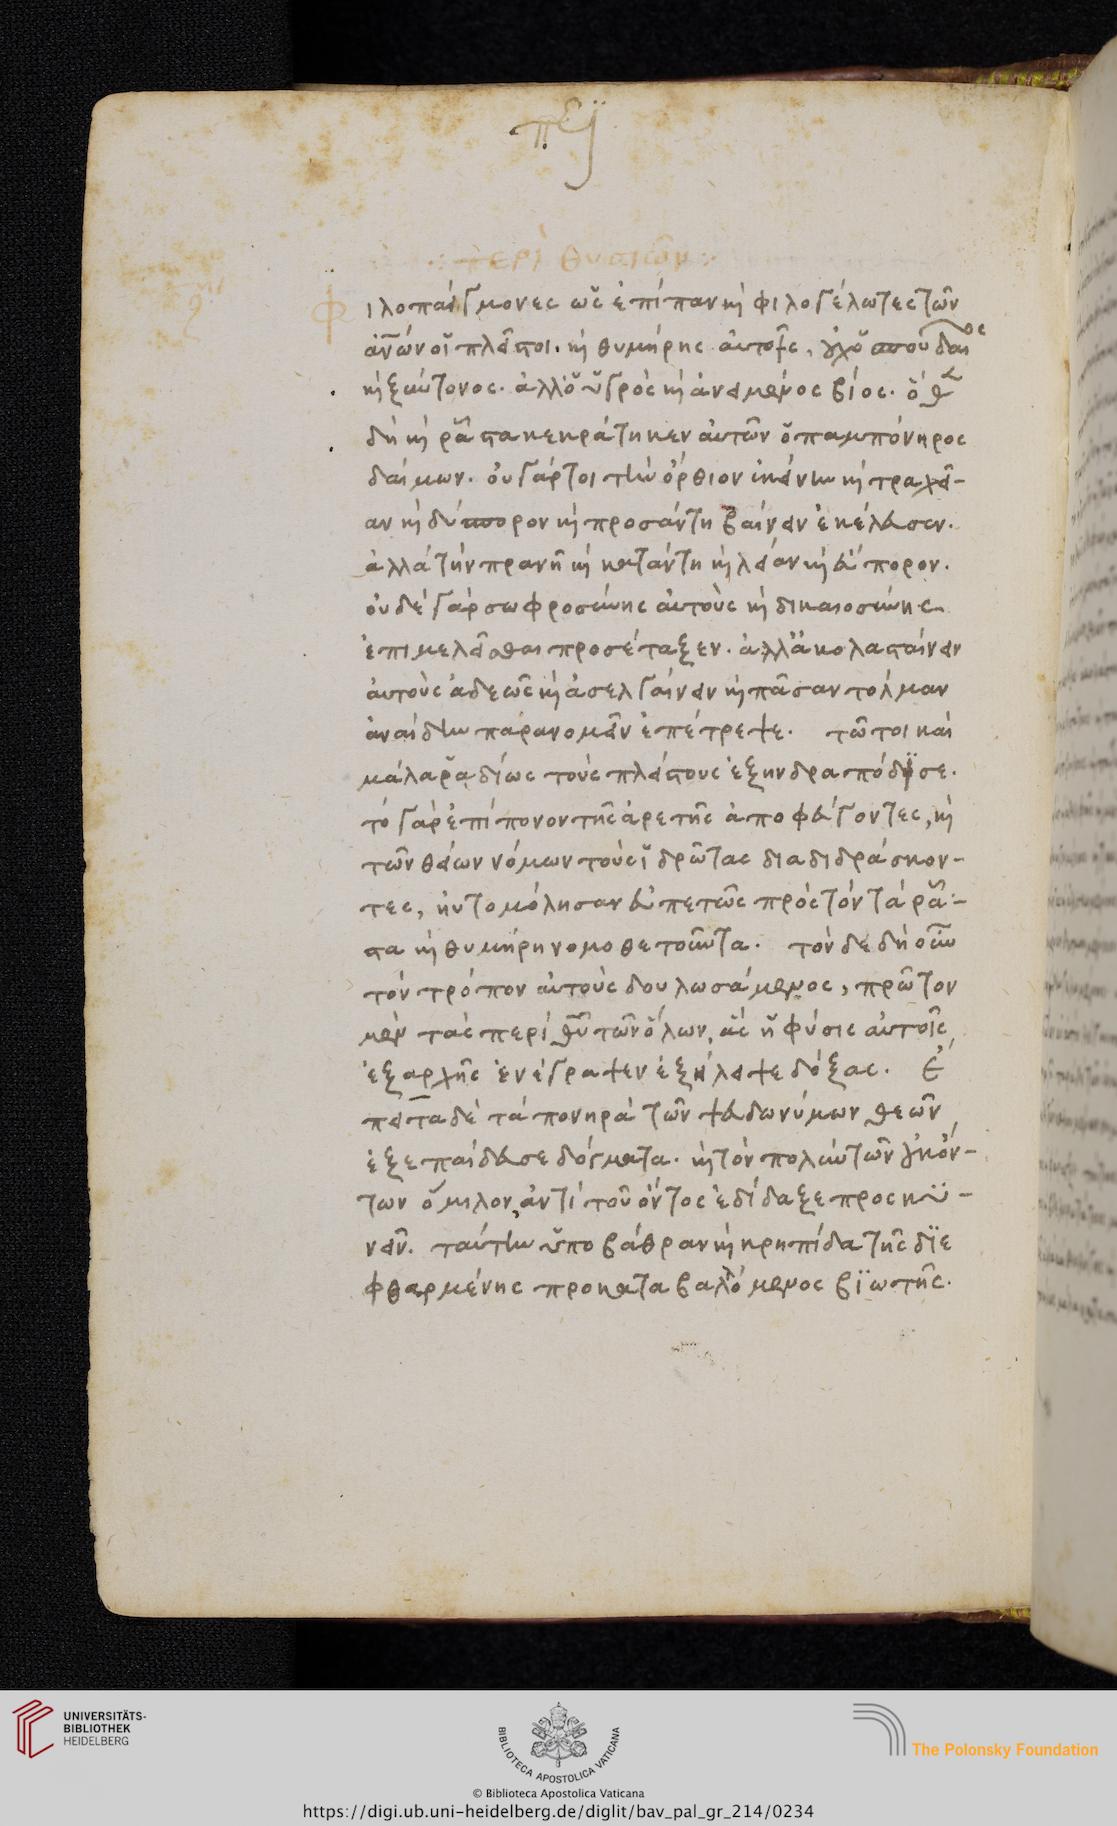 περὶ θυσιῶν
Φιλοπαίγμονες ὡς ἐπίπαν καὶ φιλογέλωτες τῶν
ἀνων οἱ πλεῖστοι. καὶ θυμήρης αὐτοῖς, οὐχ ὁ σπουδαῖος
καὶ ξύντονος. ἀλλ' ὁ ὑγρὸς καὶ ἀνειμένος βίος.
δὴ καὶ ῥᾶστα κεκράτηκεν αὐτῶν ὁ παμπόνηρος
δαίμων. οὐ γάρ τοι τὴν ὄρθιον ἐκείνην καὶ τραχεῖ-
αν καὶ δύσπορον καὶ προσάντη βαίνειν ἐκέλευσεν.
ἀλλὰ τὴν πρανῆ καὶ κατάντη καὶ λείαν καὶ εὔπορον.
οὐδὲ γὰρ σωφροσύνης αὐτοὺς καὶ δικαιοσύνης
ἐπιμελεῖσθαι προσέταξεν. ἀλλ' ἀκολασταίνειν
αὐτοὺς ἀδεῶς καὶ ἀσελγαίνειν καὶ πᾶσαν τολμᾶν
ἀναίδην παρανομεῖν ἐπέτρεψε. τῶ τοι καὶ
μάλα ῥαδίως τοὺς πλείστους ἐξηνδραπόδισε.
τὸ γὰρ ἐπίπονον τῆς ἀρετῆς ἀποφεύγοντες, καὶ
τῶν θείων νόμων τοὺς ἱδρῶτας διαδιδράσκον-
τες, ηὐτομόλησαν εὐπετῶς πρὸς τὸν τὰ ῥᾶ-
στα καὶ θυμήρη νομοθετοῦντα. τόνδε δὴ οὖν
τὸν τρόπον αὐτοὺς δουλωσάμενος, πρῶτον
μὲν τὰς περὶ θυ τῶν ὅλων, ἃς ἡ φύσις αὐτοῖς
ἐξαρχῆς ἐνέγραψεν ἐξήλειψε δόξας. Ἔ
πειτα δὲ τὰ πονηρὰ τῶν ψευδωνύμων θεῶν
ἐξεπαίδευσε δόγματα. καὶ τὸν πολὺν τῶν οὐκ ὄν-
των ὅμιλον, ἀντὶ τοῦ ὄντος ἐδίδαξε προσκυ-
νεῖν. ταύτην ὑποβάθραν καὶ κρηπίδα τῆς διε
φθαρμένης προκαταβαλόμενος βιωτῆς.
UNIVERSITÄTS-
BIBLIOTHEK
HEIDELBERG
BIBLIOTECA APOSTOLICA VATICANA
The Polonsky Foundation
© Biblioteca Apostolica Vaticana
https://digi.ub.uni-heidelberg.de/diglit/bav_pal_gr_214/0234